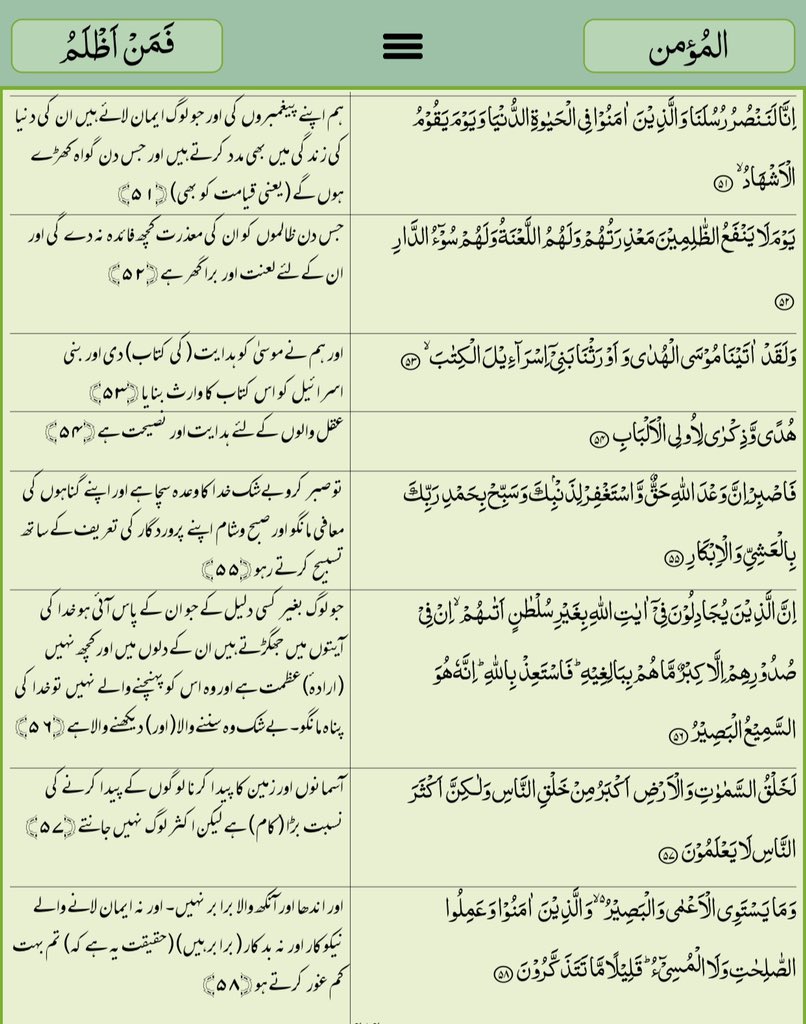 المُؤمن
فَمَنْ اَظْلَمُ
اِنَّا لَنَنْصُرُ رُسُلَنَا وَالَّذِیْنَ اٰمَنُوْا فِی الْحَیٰوةِ الدُّنْیَا وَیَوْمَ یَقُوْمُ
الْاَشْهَادُ ۙ ﴿۵۱﴾
ہم اپنے پیغمبروں کی اور جو لوگ ایمان لائے ہیں ان کی دنیا
کی زندگی میں بھی مدد کرتے ہیں اور جس دن گواہ کھڑے
ہوں گے (یعنی قیامت کو بھی) ﴿۵۱﴾
یَوْمَ لَا یَنْفَعُ الظّٰلِمِیْنَ مَعْذِرَتُهُمْ وَلَهُمُ اللَّعْنَةُ وَلَهُمْ سُوْٓءُ الدَّارِ
﴿۵۲﴾
جس دن ظالموں کو ان کی معذرت کچھ فائدہ نہ دے گی اور
ان کے لئے لعنت اور برا گھر ہے ﴿۵۲﴾
وَلَقَدْ اٰتَیْنَا مُوْسَی الْهُدٰی وَ اَوْرَثْنَا بَنِیْۤ اِسْرَآءِیْلَ الْكِتٰبَ ۙ ﴿۵۳﴾
اور ہم نے موسیٰ کو ہدایت (کی کتاب) دی اور بنی
اسرائیل کو اس کتاب کا وارث بنایا ﴿۵۳﴾
هُدًی وَّذِكْرٰی لِاُولِی الْاَلْبَابِ ﴿۵۴﴾
عقل والوں کے لئے ہدایت اور نصیحت ہے ﴿۵۴﴾
فَاصْبِرْ اِنَّ وَعْدَ اللّٰهِ حَقٌّ وَّاسْتَغْفِرْ لِذَنْۢبِكَ وَسَبِّحْ بِحَمْدِ رَبِّكَ
بِالْعَشِیِّ وَالْاِبْكَارِ ﴿۵۵﴾
تو صبر کرو بےشک خدا کا وعدہ سچا ہے اور اپنے گناہوں کی
معافی مانگو اور صبح وشام اپنے پروردگار کی تعریف کے ساتھ
تسبیح کرتے رہو ﴿۵۵﴾
اِنَّ الَّذِیْنَ یُجَادِلُوْنَ فِیْۤ اٰیٰتِ اللّٰهِ بِغَیْرِ سُلْطٰنٍ اَتٰىهُمْ ۙ اِنْ فِیْ
صُدُوْرِهِمْ اِلَّا كِبْرٌ مَّا هُمْ بِبَالِغِیْهِ ؕ فَاسْتَعِذْ بِاللّٰهِ ؕ اِنَّهٗ هُوَ
السَّمِیْعُ الْبَصِیْرُ ﴿۵۶﴾
جو لوگ بغیر کسی دلیل کے جو ان کے پاس آئی ہو خدا کی
آیتوں میں جھگڑتے ہیں ان کے دلوں میں اور کچھ نہیں
(ارادہٴ) عظمت ہے اور وہ اس کو پہنچنے والے نہیں تو خدا کی
پناہ مانگو۔ بےشک وہ سننے والا (اور) دیکھنے والا ہے ﴿۵۶﴾
لَخَلْقُ السَّمٰوٰتِ وَالْاَرْضِ اَكْبَرُ مِنْ خَلْقِ النَّاسِ وَلٰكِنَّ اَكْثَرَ
النَّاسِ لَا یَعْلَمُوْنَ ﴿۵۷﴾
آسمانوں اور زمین کا پیدا کرنا لوگوں کے پیدا کرنے کی
نسبت بڑا (کام) ہے لیکن اکثر لوگ نہیں جانتے ﴿۵۷﴾
وَمَا یَسْتَوِی الْاَعْمٰی وَالْبَصِیْرُ ۙ۬ وَالَّذِیْنَ اٰمَنُوْا وَعَمِلُوا
الصّٰلِحٰتِ وَلَا الْمُسِیْٓءُ ؕ قَلِیْلًا مَّا تَتَذَكَّرُوْنَ ﴿۵۸﴾
اور اندھا اور آنکھ والا برابر نہیں۔ اور نہ ایمان لانے والے
نیکوکار اور نہ بدکار (برابر ہیں) (حقیقت یہ ہے کہ) تم بہت
کم غور کرتے ہو ﴿۵۸﴾